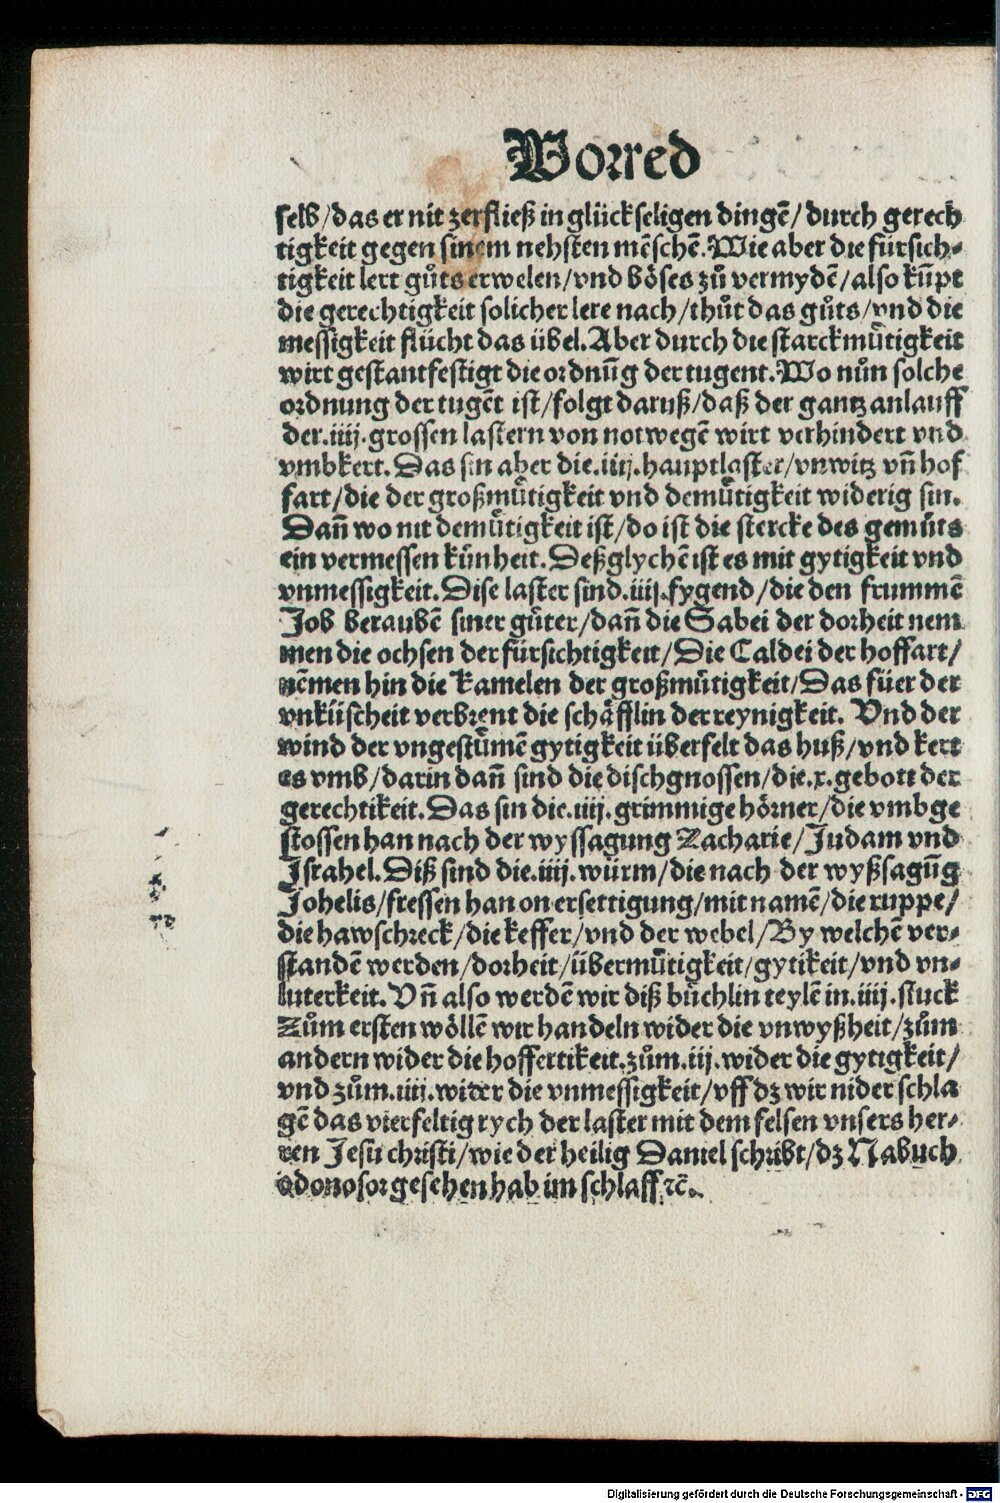 Vorred
selb/das er nit zerfließ in glückseligen dingē/durch gerech
tigkeit gegen sinem nehsten mēschē. Wie aber die fürsich⸗
tigkeit lert gůts erwelen/vnd böses zů vermydē/also kūpt
die gerechtigkeit solicher lere nach/thůt das gůts/vnd die
messigkeit flücht das übel. Aber durch die starckmütigkeit
wirt gestantfestigt die ordnūg der tugent. Wo nůn solche
ordnung der tugēt ist/folgt daruß/daß der gantz anlauff
der .iiij. grossen lastern von notwegē wirt verhindert vnd
vmbkert. Das sin aber die .iiij. hauptlaster/vnwitz vn̄ hof
fart/die der großmütigkeit vnd demütigkeit widerig sin.
Dan̄ wo nit demütigkeit ist/do ist die stercke des gemüts
ein vermessen künheit. Deßglychē ist es mit gytigkeit vnd
vnmessigkeit. Dise laster sind .iiij. fygend/die den frummē
Job beraubē siner güter/dan̄ die Sabei der dorheit nem
men die ochsen der fürsichtigkeit/Die Caldei der hoffart/
nēmen hin die kamelen der großmütigkeit/Das füer der
vnküscheit verbrent die schäfflin der reynigkeit. Vnd der
wind der vngestümē gytigkeit überfelt das huß/vnd kert
es vmb/darin dan̄ sind die dischgnossen/die .x. gebott der
gerechtikeit. Das sin die .iiij. grimmige hörner/die vmbge
stossen han nach der wyssagung Zacharie/Judam vnd
Israhel. Diß sind die .iiij. würm/die nach der wyßsagūg
Johelis/fressen han on ersettigung/mit namē/die ruppe/
die hawschreck/die keffer/vnd der webel/By welchē ver⸗
standē werden/dorheit/übermütigkeit/gytikeit/vnd vn⸗
luterkeit. Vn̄ also werdē wir diß büchlin teylē in .iiij. stuck
Zům ersten wöllē wir handeln wider die vnwyßheit/zům
andern wider die hoffertikeit. zům .iij. wider die gytigkeit/
vnd zům .iiij. wider die vnmessigkeit/vff dz wir nider schla
gē das vierfeltig rych der laster mit dem felsen vnsers her⸗
ren Jesu christi/wie der heilig Daniel schribt/dz Nabuch
odonosor gesehen hab im schlaff ꝛc̄.
Digitalisierung gefördert durch die Deutsche Forschungsgemeinschaft - DFG